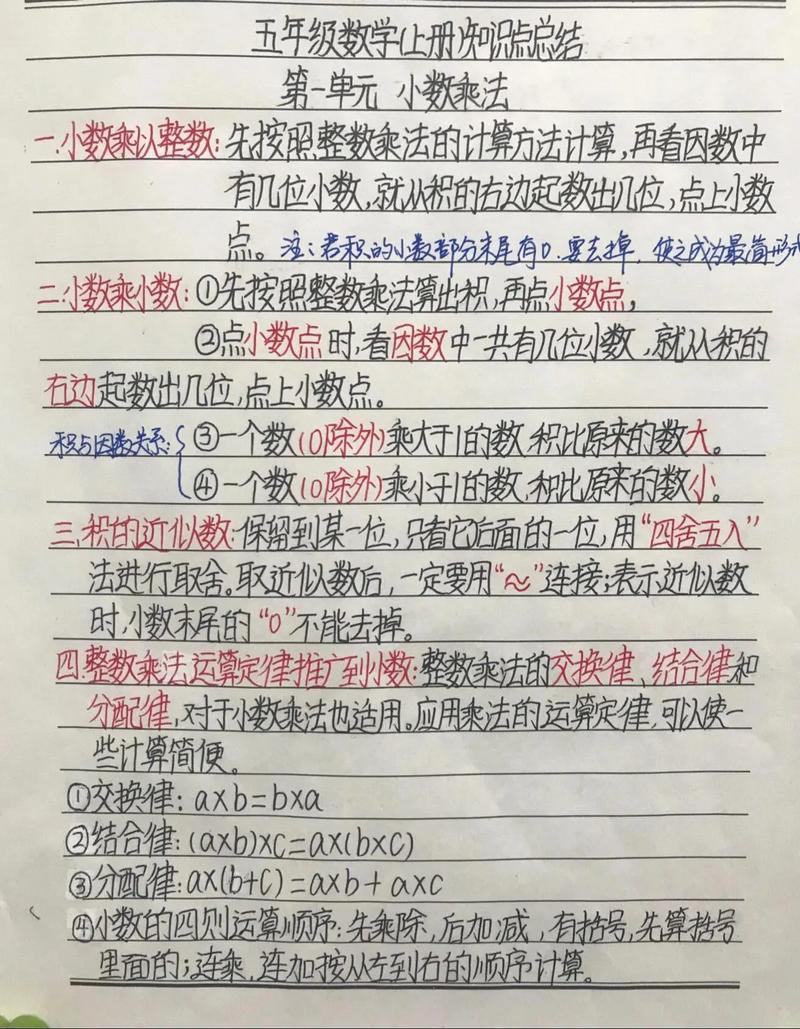 五年级数学(上册)知识点总结
第一单元 小数乘法
一.小数乘以整数:先按照整数乘法的计算方法计算,再看因数中
有几位小数,就从积的右边起数出几位,点上小数
点。注:若积的小数部分末尾有0.要去掉,使之成为最简形式
二.小数乘小数:①先按照整数乘法算出积,再点小数点,
②点小数点时,看因数中一共有几位小数,就从积的
右边起数出几位,点上小数点。
积与因数关系:③一个数(0除外)乘大于1的数,积比原来的数大。
④一个数(0除外)乘小于1的数,积比原来的数小。
三.积的近似数:保留到某一位,只看它后面的一位,用“四舍五入”
法进行取舍。取近似数后,一定要用“≈”连接;表示近似数
时,小数末尾的“0”不能去掉。
四.整数乘法运算定律推广到小数:整数乘法的交换律、结合律和
分配律,对于小数乘法也适用。应用乘法的运算定律,可以使一
些计算简便。
①交换律:a×b=b×a
②结合律:(a×b)×c=a×(b×c)
③分配律:a×(b+c)=a×b+a×c
④小数的四则运算顺序:先乘除,后加减,有括号,先算括号
里面的;连乘,连加按从左到右的顺序计算。